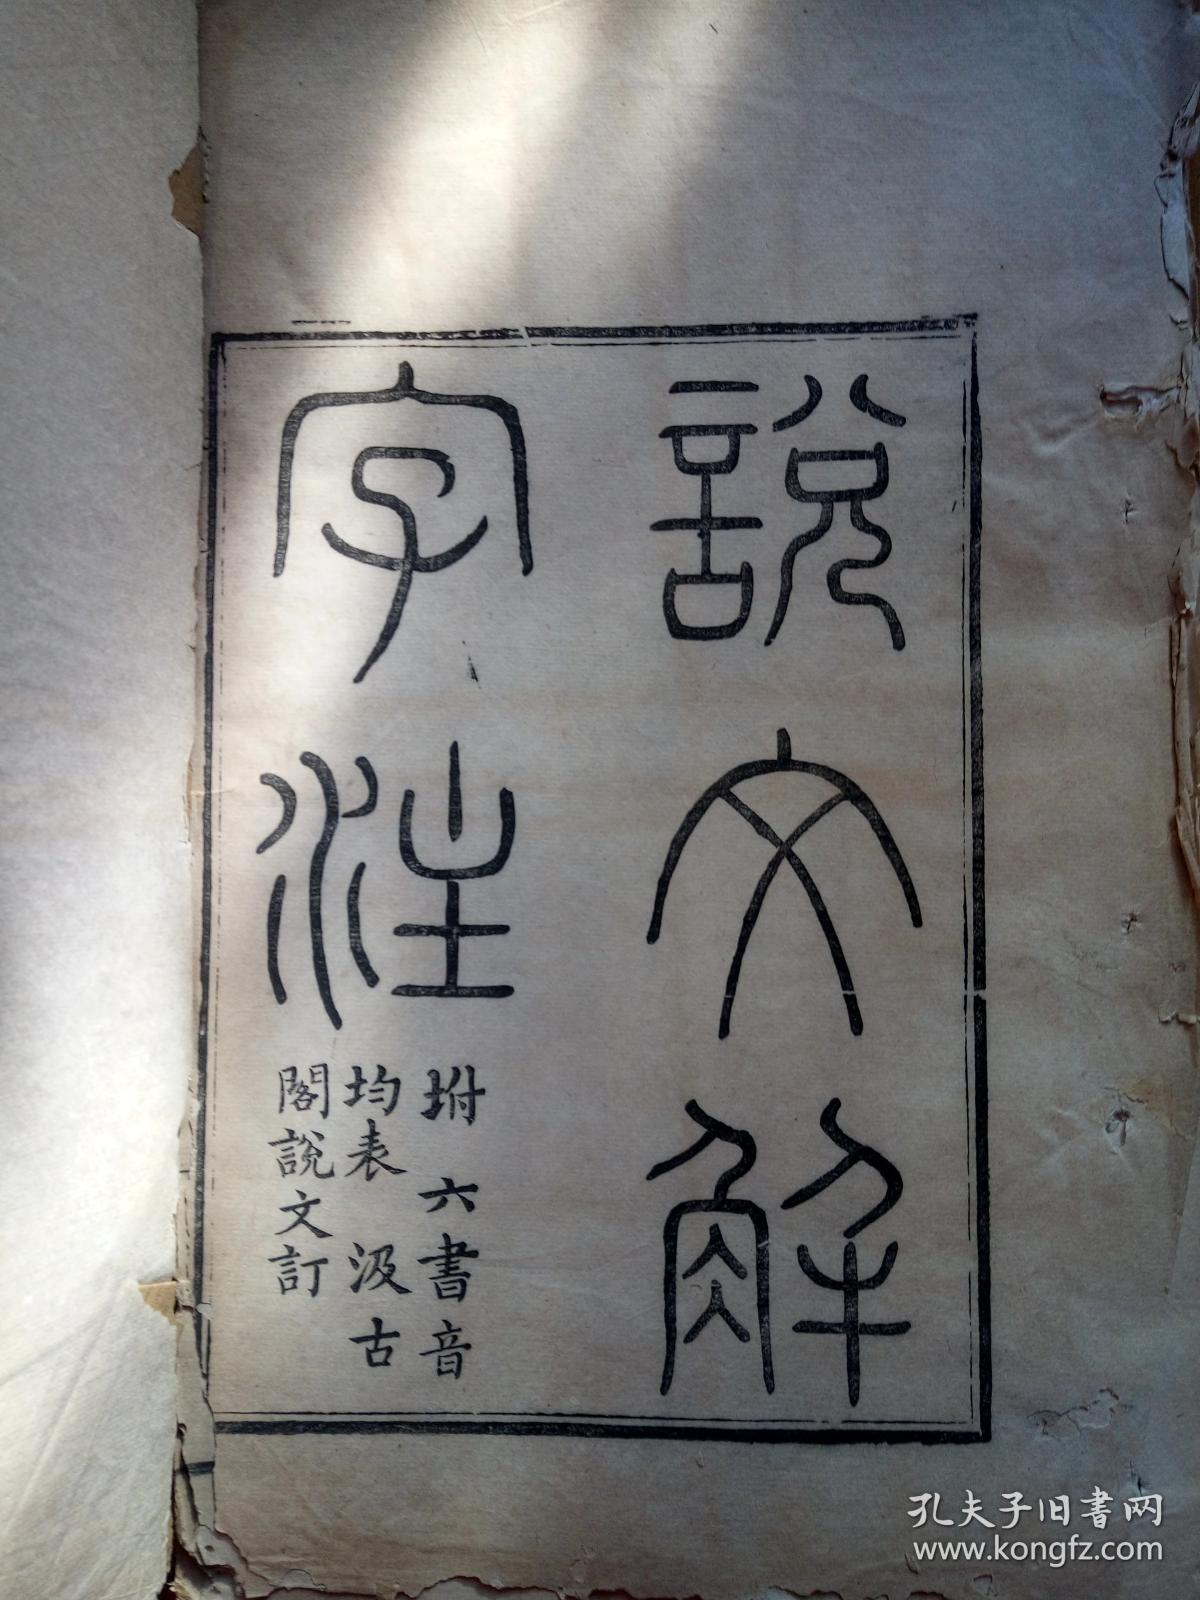 說文解
字注
坿 六書音
均表 汲古
閣說文訂
孔夫子旧书网
www.kongfz.com